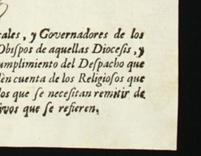 cales, y Governadores de los
Obispos de aquellas Diocesis, y
umplimiento del Despacho que
dèn cuenta de los Religiosos que
los que se necesitan remitir de
ivos que se refieren.